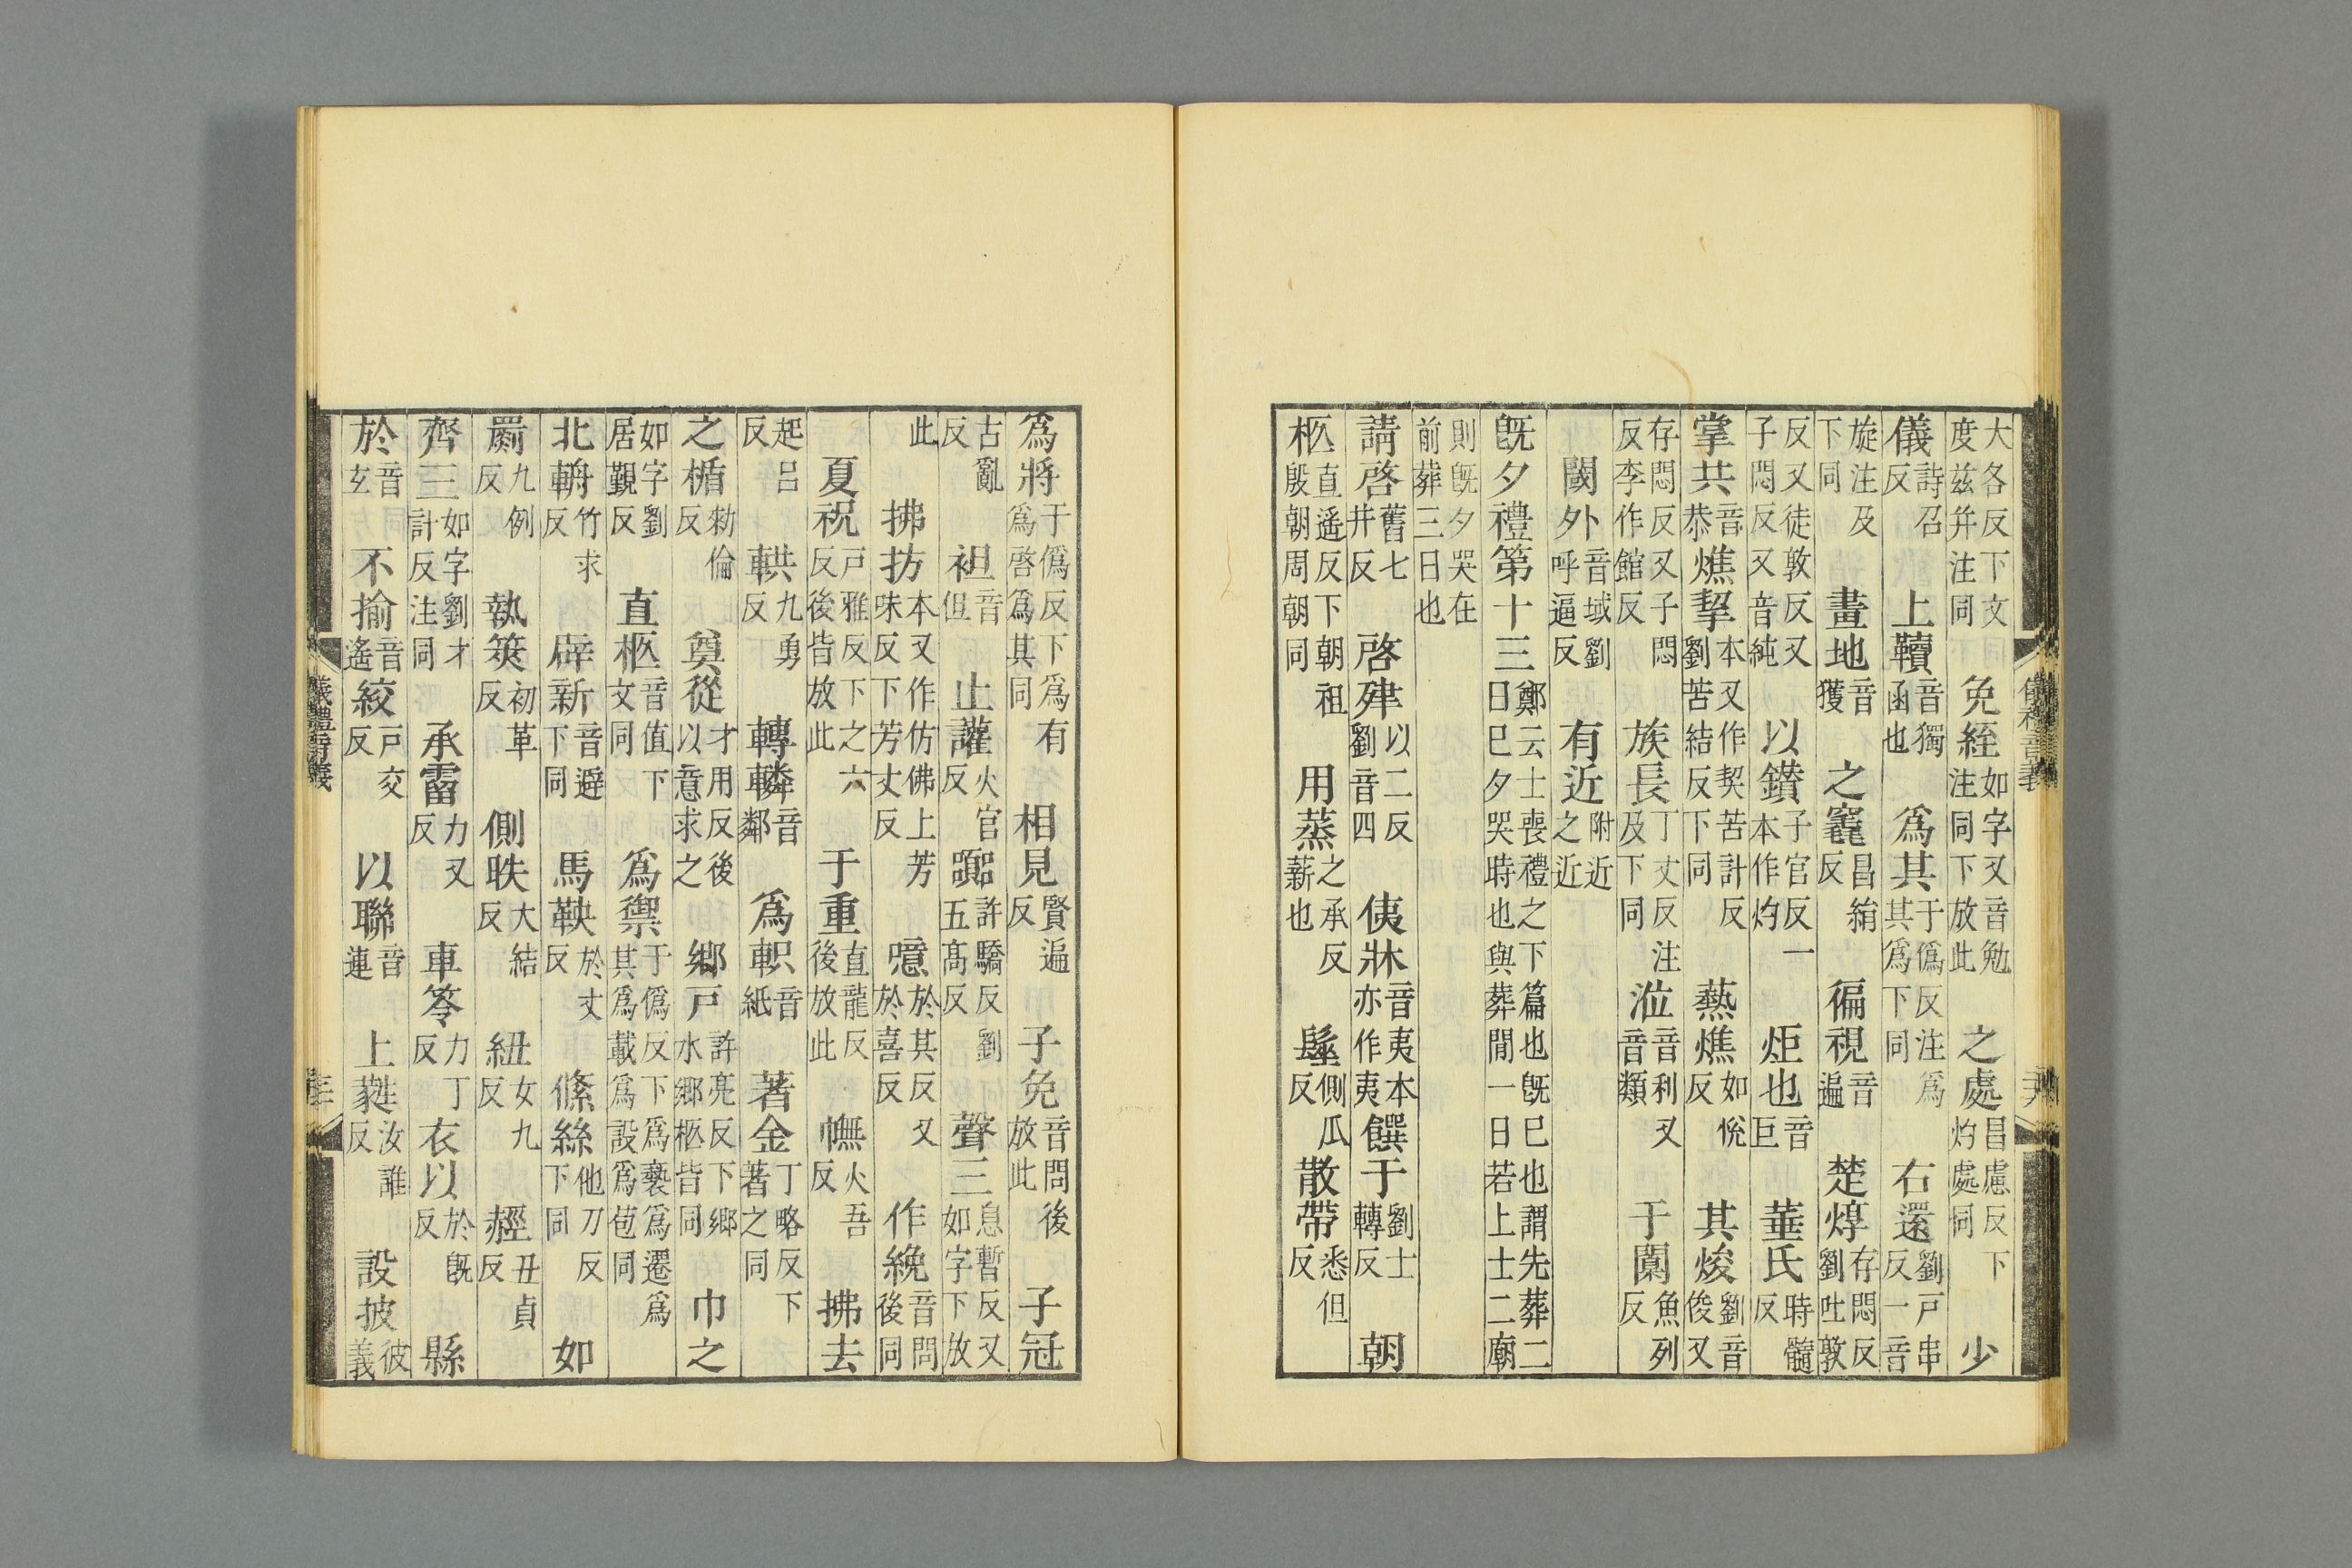 大各反下文度茲幷注同 免絰如字又音勉注同下放此 之處昌慮反下灼處同 少
儀詩召反 上韥音獨函也 爲其于僞反注爲其爲下同 右還劉戶串反一音
旋注及下同 畫地音獲 之竁昌絹反 徧視音遍 楚焞存悶反劉吐敦
反又徒敦反又子悶反又音純 以鑚子官反一本作灼 炬也音巨 菙氏時髓反
掌共音恭 燋挈本又作契苦計反劉苦結反下同 爇燋如悅反 其焌劉音俊又
存悶反又子悶反李作館反 族長丁丈反注及下同 涖音利又音類 于闑魚列反
閾外音域劉呼逼反 有近附近之近
旣夕禮第十三鄭云士喪禮之下篇也旣已也謂先葬二日已夕哭時也與葬閒一日若上士二廟
則旣夕哭在前葬三日也
請啓舊七井反 啓殔以二反劉音四 侇牀音夷本亦作夷 饌于劉士轉反 朝
柩直遥反下朝祖殷朝周朝同 用蒸之承反薪也 髽側瓜反 散帶悉但反
爲將于僞反下爲有爲啓爲其同 相見賢遍反 子免音問後放此 子冠
古亂反 袒音但 止讙火官反 嚻許驕反劉五高反 聲三息暫反又如字下放
此 拂扐本又作仿佛上芳味反下芳丈反 噫於其反又於喜反 作絻音問後同
夏祝戶雅反下之六反後皆放此 于重直龍反後放此 幠火吾反 拂去
起呂反 輁九勇反 轉轔音鄰 爲軹音紙 著金丁略反下著之同
之楯勑倫反 奠從才用反後以意求之 鄉戶許亮反下鄉水鄉柩皆同 巾之
如字劉居覲反 直柩音值下文同 爲禦于僞反下爲褻爲遷爲其爲載爲設爲苞同
北輈竹求反 辟新音避下同 馬鞅於丈反 絛絲他刀反下同 如
罽九例反 執筴初革反 側昳大結反 紐女九反 䞓丑貞反
齊三如字劉才計反注同 承霤力又反 車笭力丁反 衣以於旣反 縣
於音玄 不揄音遙 絞戶交反 以聯音連 上蕤汝誰反 設披彼義
儀禮音義